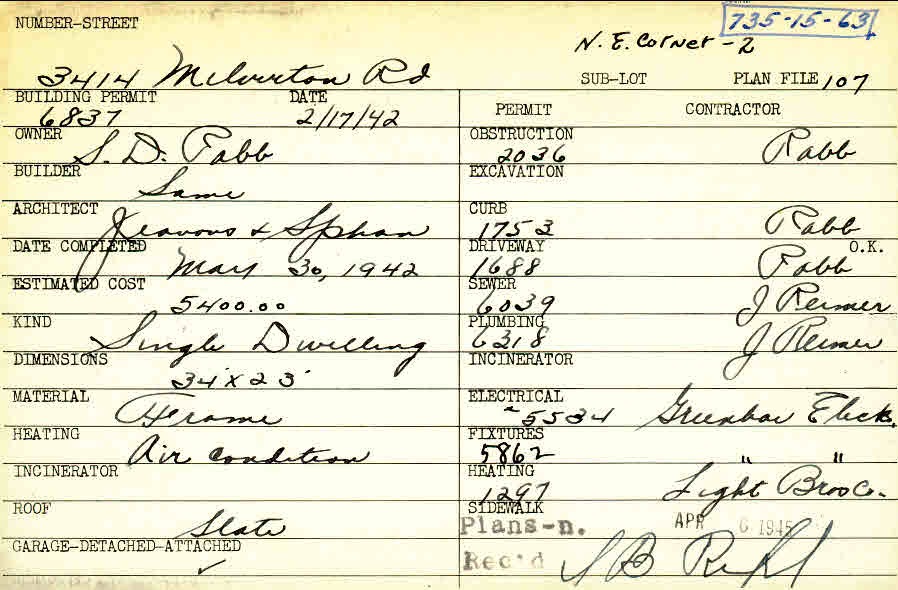 NUMBER-STREET
735-15-63
N.E. Corner - 2
3414 Milverton Rd
SUB-LOT PLAN FILE 107
BUILDING PERMIT DATE
6837 2/17/42
PERMIT CONTRACTOR
OWNER
S. D. Rabb
OBSTRUCTION
2036 Rabb
BUILDER
Same
EXCAVATION
ARCHITECT
Jeavons & Sphan
CURB
1753 Rabb
DATE COMPLETED
May 30, 1942
DRIVEWAY O.K.
1688 Rabb
ESTIMATED COST
5400.00
SEWER
6039 J Reimer
KIND
Single Dwelling
PLUMBING
6318 J Reimer
DIMENSIONS
34' x 23'
INCINERATOR
MATERIAL
Frame
ELECTRICAL
5534 Greenbae Eleck.
HEATING
Air condition
FIXTURES
5862 " "
INCINERATOR
HEATING
1297 Light Bros Co.
ROOF
Slate
SIDEWALK
Plans-n. APR 6 1945
GARAGE-DETACHED-ATTACHED
✓
Rec'd